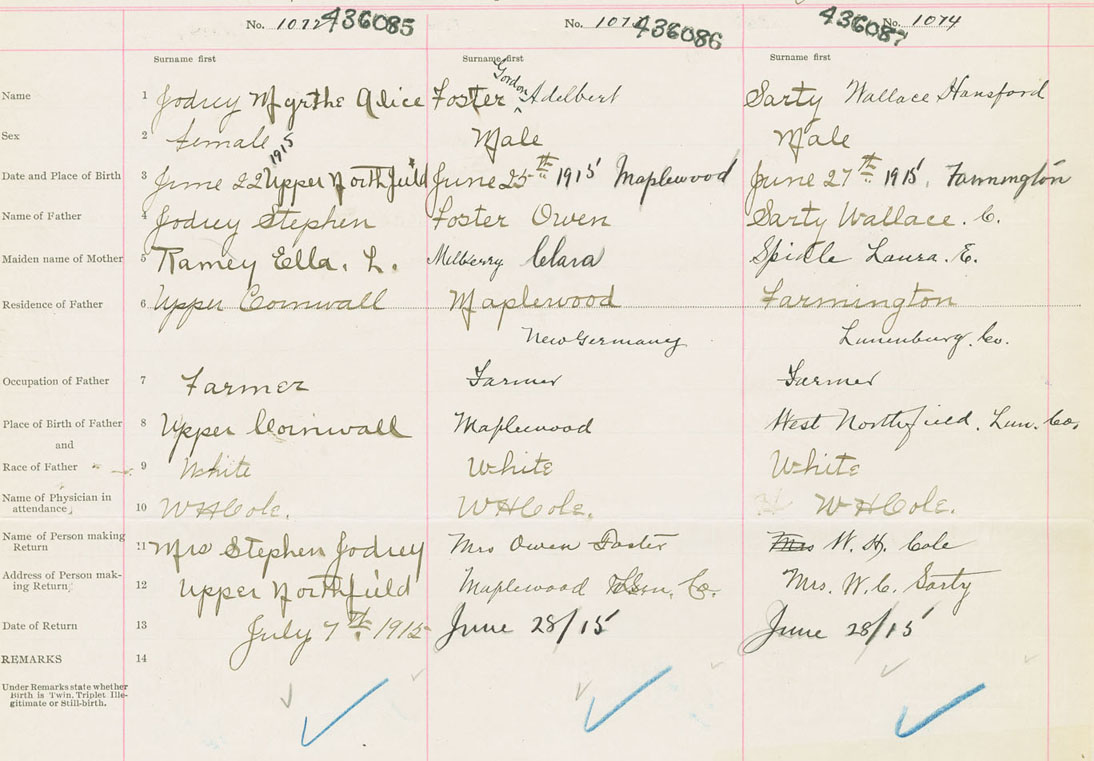 No. 1072 436085 No. 107 436086 436087 No. 1074
Surname first Surname first Surname first
Name 1 Jodrey Myrthe Alice Foster Gordon Adelbert Sarty Wallace Hansford
Sex 2 female Male Male
Date and Place of Birth 3 June 22 1915 Upper Northfield June 25th 1915 Maplewood June 27th 1915. Farmington
Name of Father 4 Jodrey Stephen Foster Owen Sarty Wallace. C.
Maiden name of Mother 5 Ramey Ella. L. Melberry Clara Spidle Laura. E.
Residence of Father 6 Upper Cornwall Maplewood Farmington
New Germany Lunenburg. Co.
Occupation of Father 7 Farmer Farmer Farmer
Place of Birth of Father 8 Upper Cornwall Maplewood West Northfield. Lun. Co.
and
Race of Father 9 White White White
Name of Physician in
attendance 10 W H Cole. W H Cole. W H Cole.
Name of Person making
Return 11 Mrs Stephen Jodrey Mrs Owen Foster Mrs W. H. Cole
Address of Person mak-
ing Return 12 Upper Northfield Maplewood Lun. Co. Mrs. W. C. Sarty
Date of Return 13 July 7th. 1915 June 28/15 June 28/15
REMARKS 14
Under Remarks state whether
Birth is Twin, Triplet Ille-
gitimate or Still-birth.